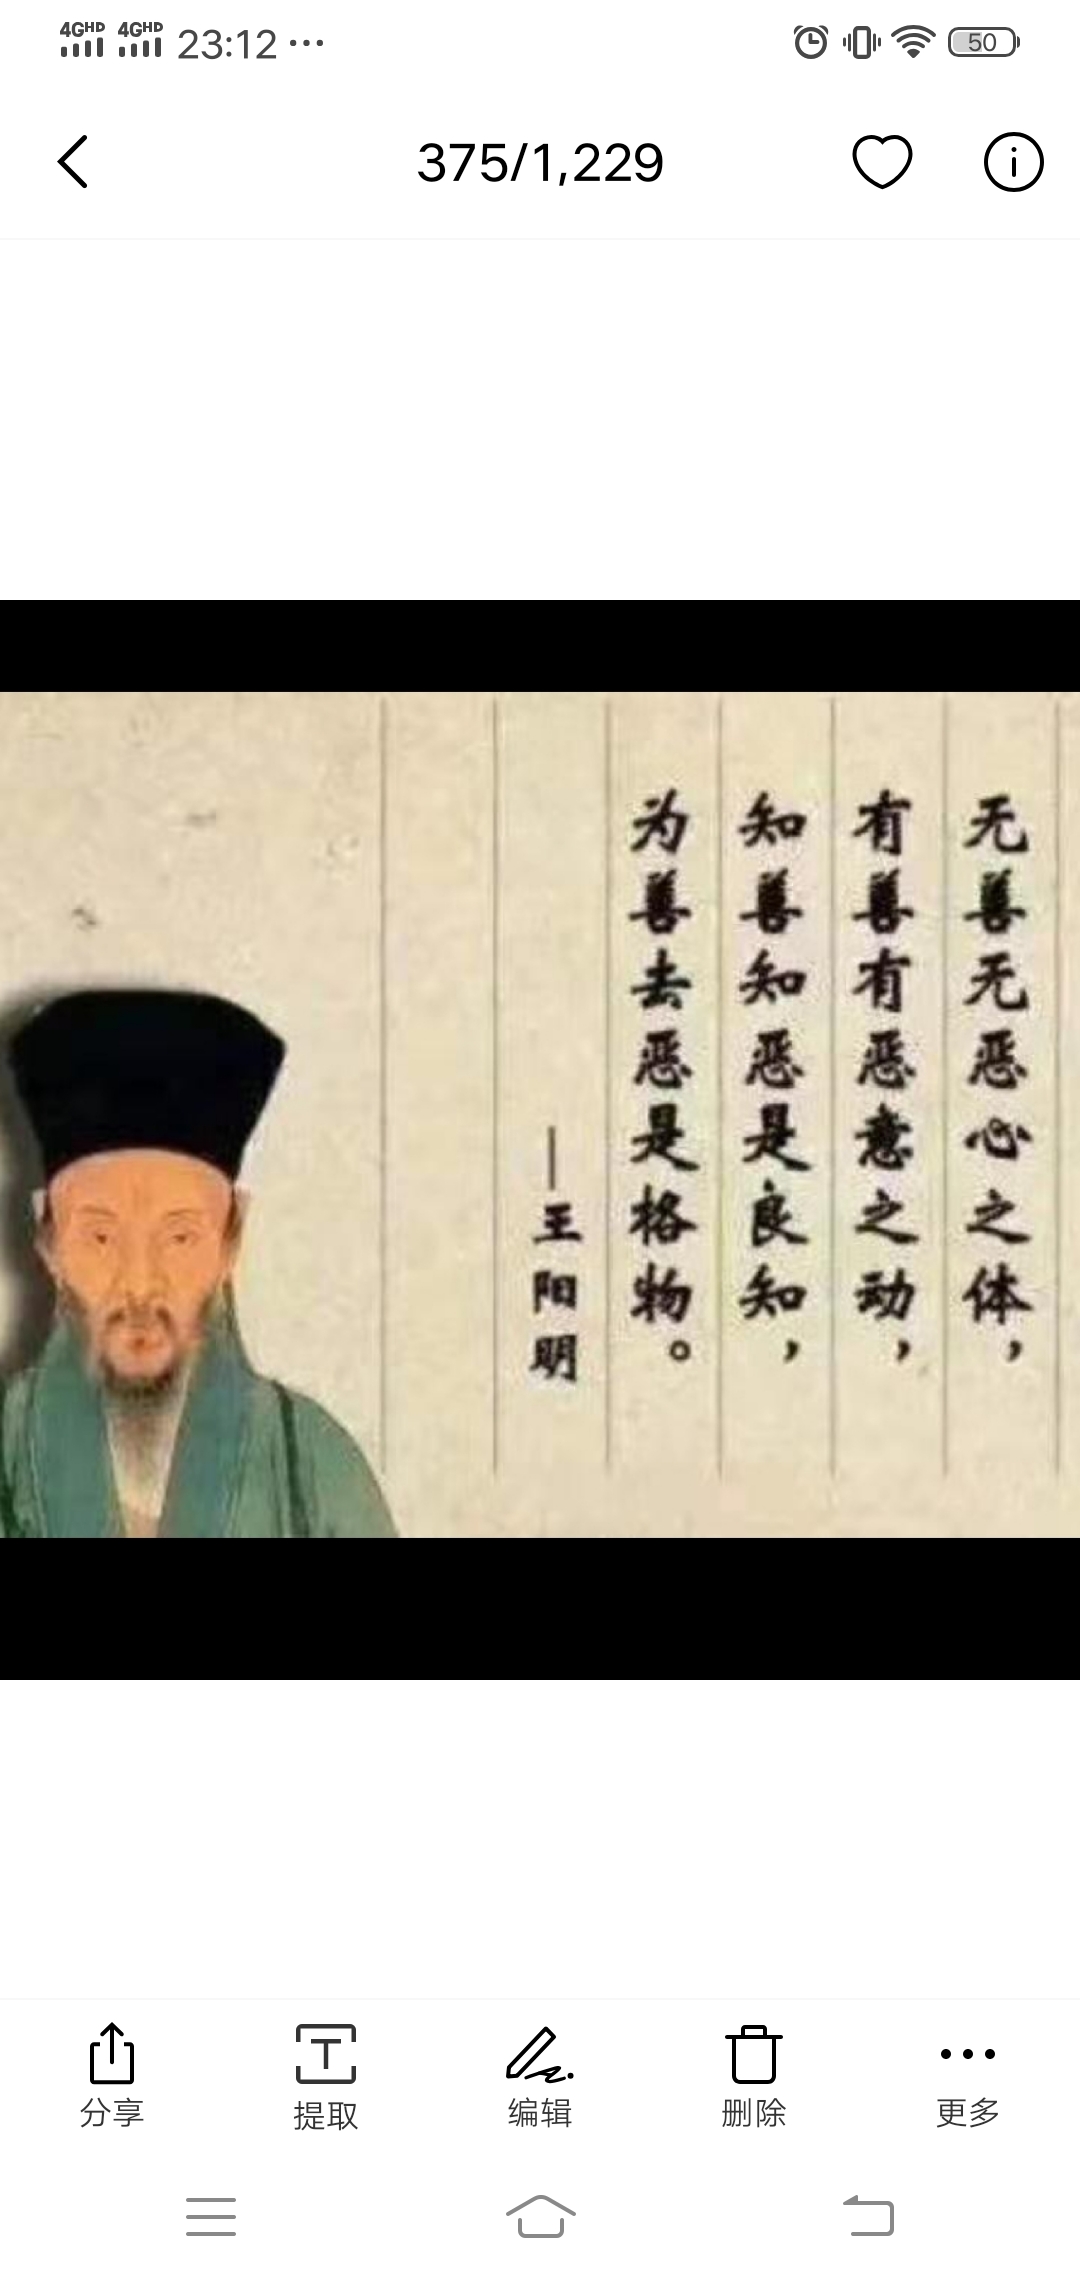 4GHD 4GHD 23:12 ··· 50
375/1,229
无善无恶心之体，
有善有恶意之动，
知善知恶是良知，
为善去恶是格物。
—王阳明
分享 提取 编辑 删除 更多